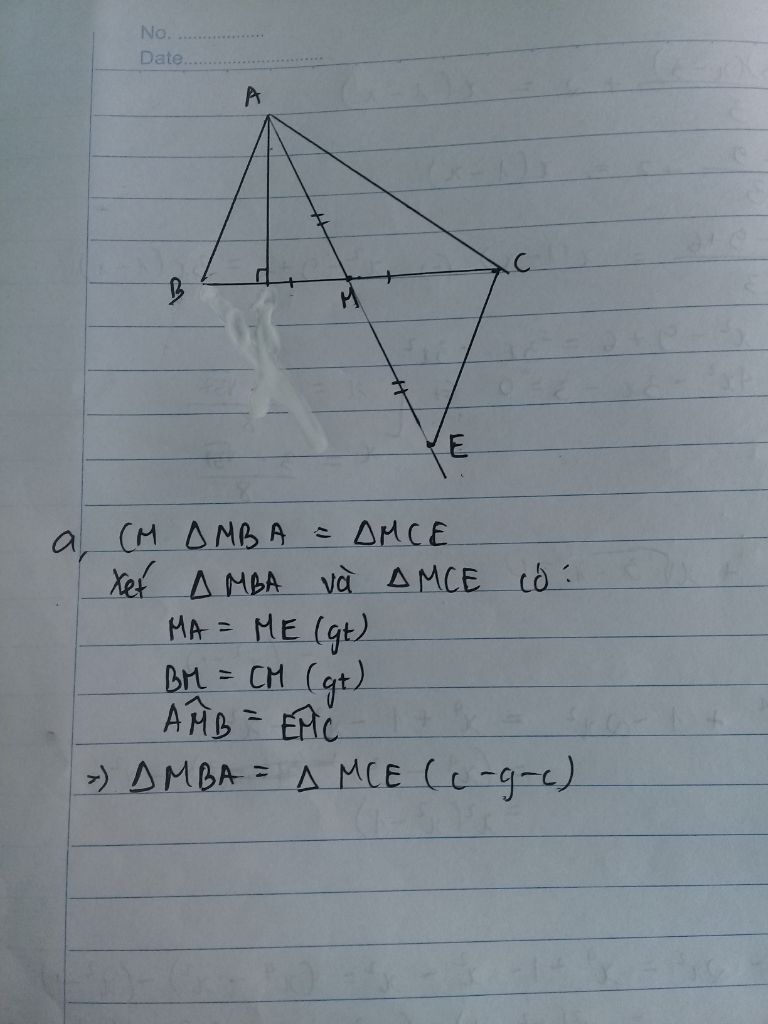 No. ..................
Date..............................
A
B
M
C
E
a, CM Δ MBA = ΔMCE
Xét Δ MBA và ΔMCE có :
MA = ME (gt)
BM = CM (gt)
AM̂B = EM̂C
=> ΔMBA = Δ MCE (c-g-c)